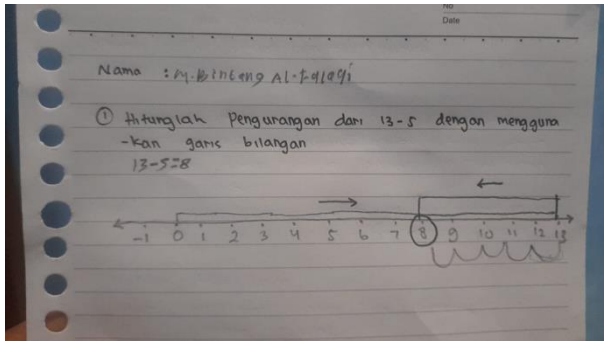 No
Date
Nama : M. Bintang Al-
① Hitunglah Pengurangan dari 13-5 dengan mengguna
-kan garis bilangan
13-5=8
-1 0 1 2 3 4 5 6 7 8 9 10 11 12 13